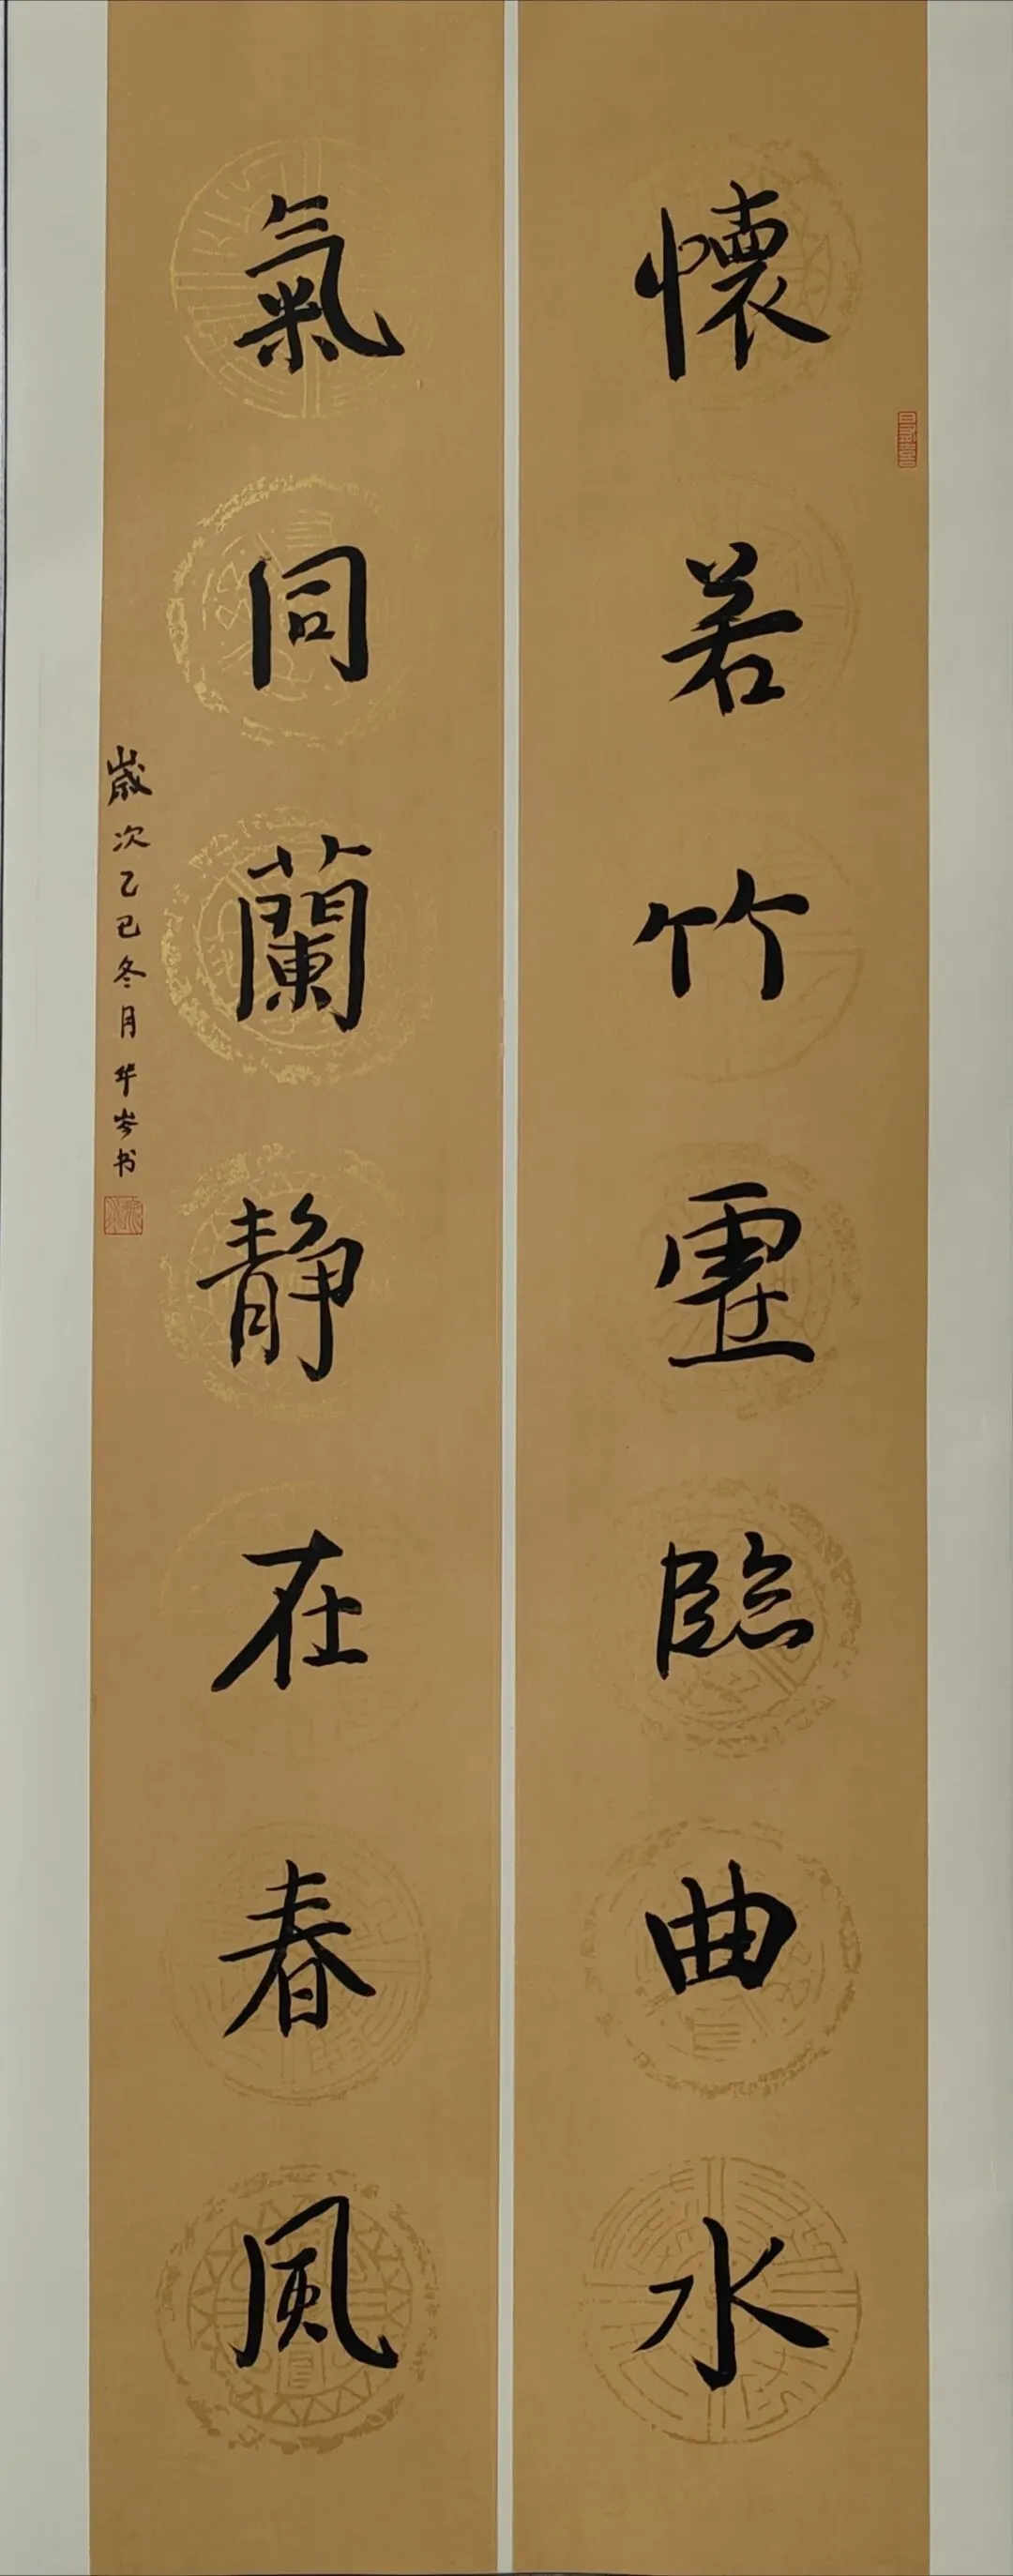 懷若竹虛臨曲水
氣同蘭静在春風
歲次乙巳冬月华岑书